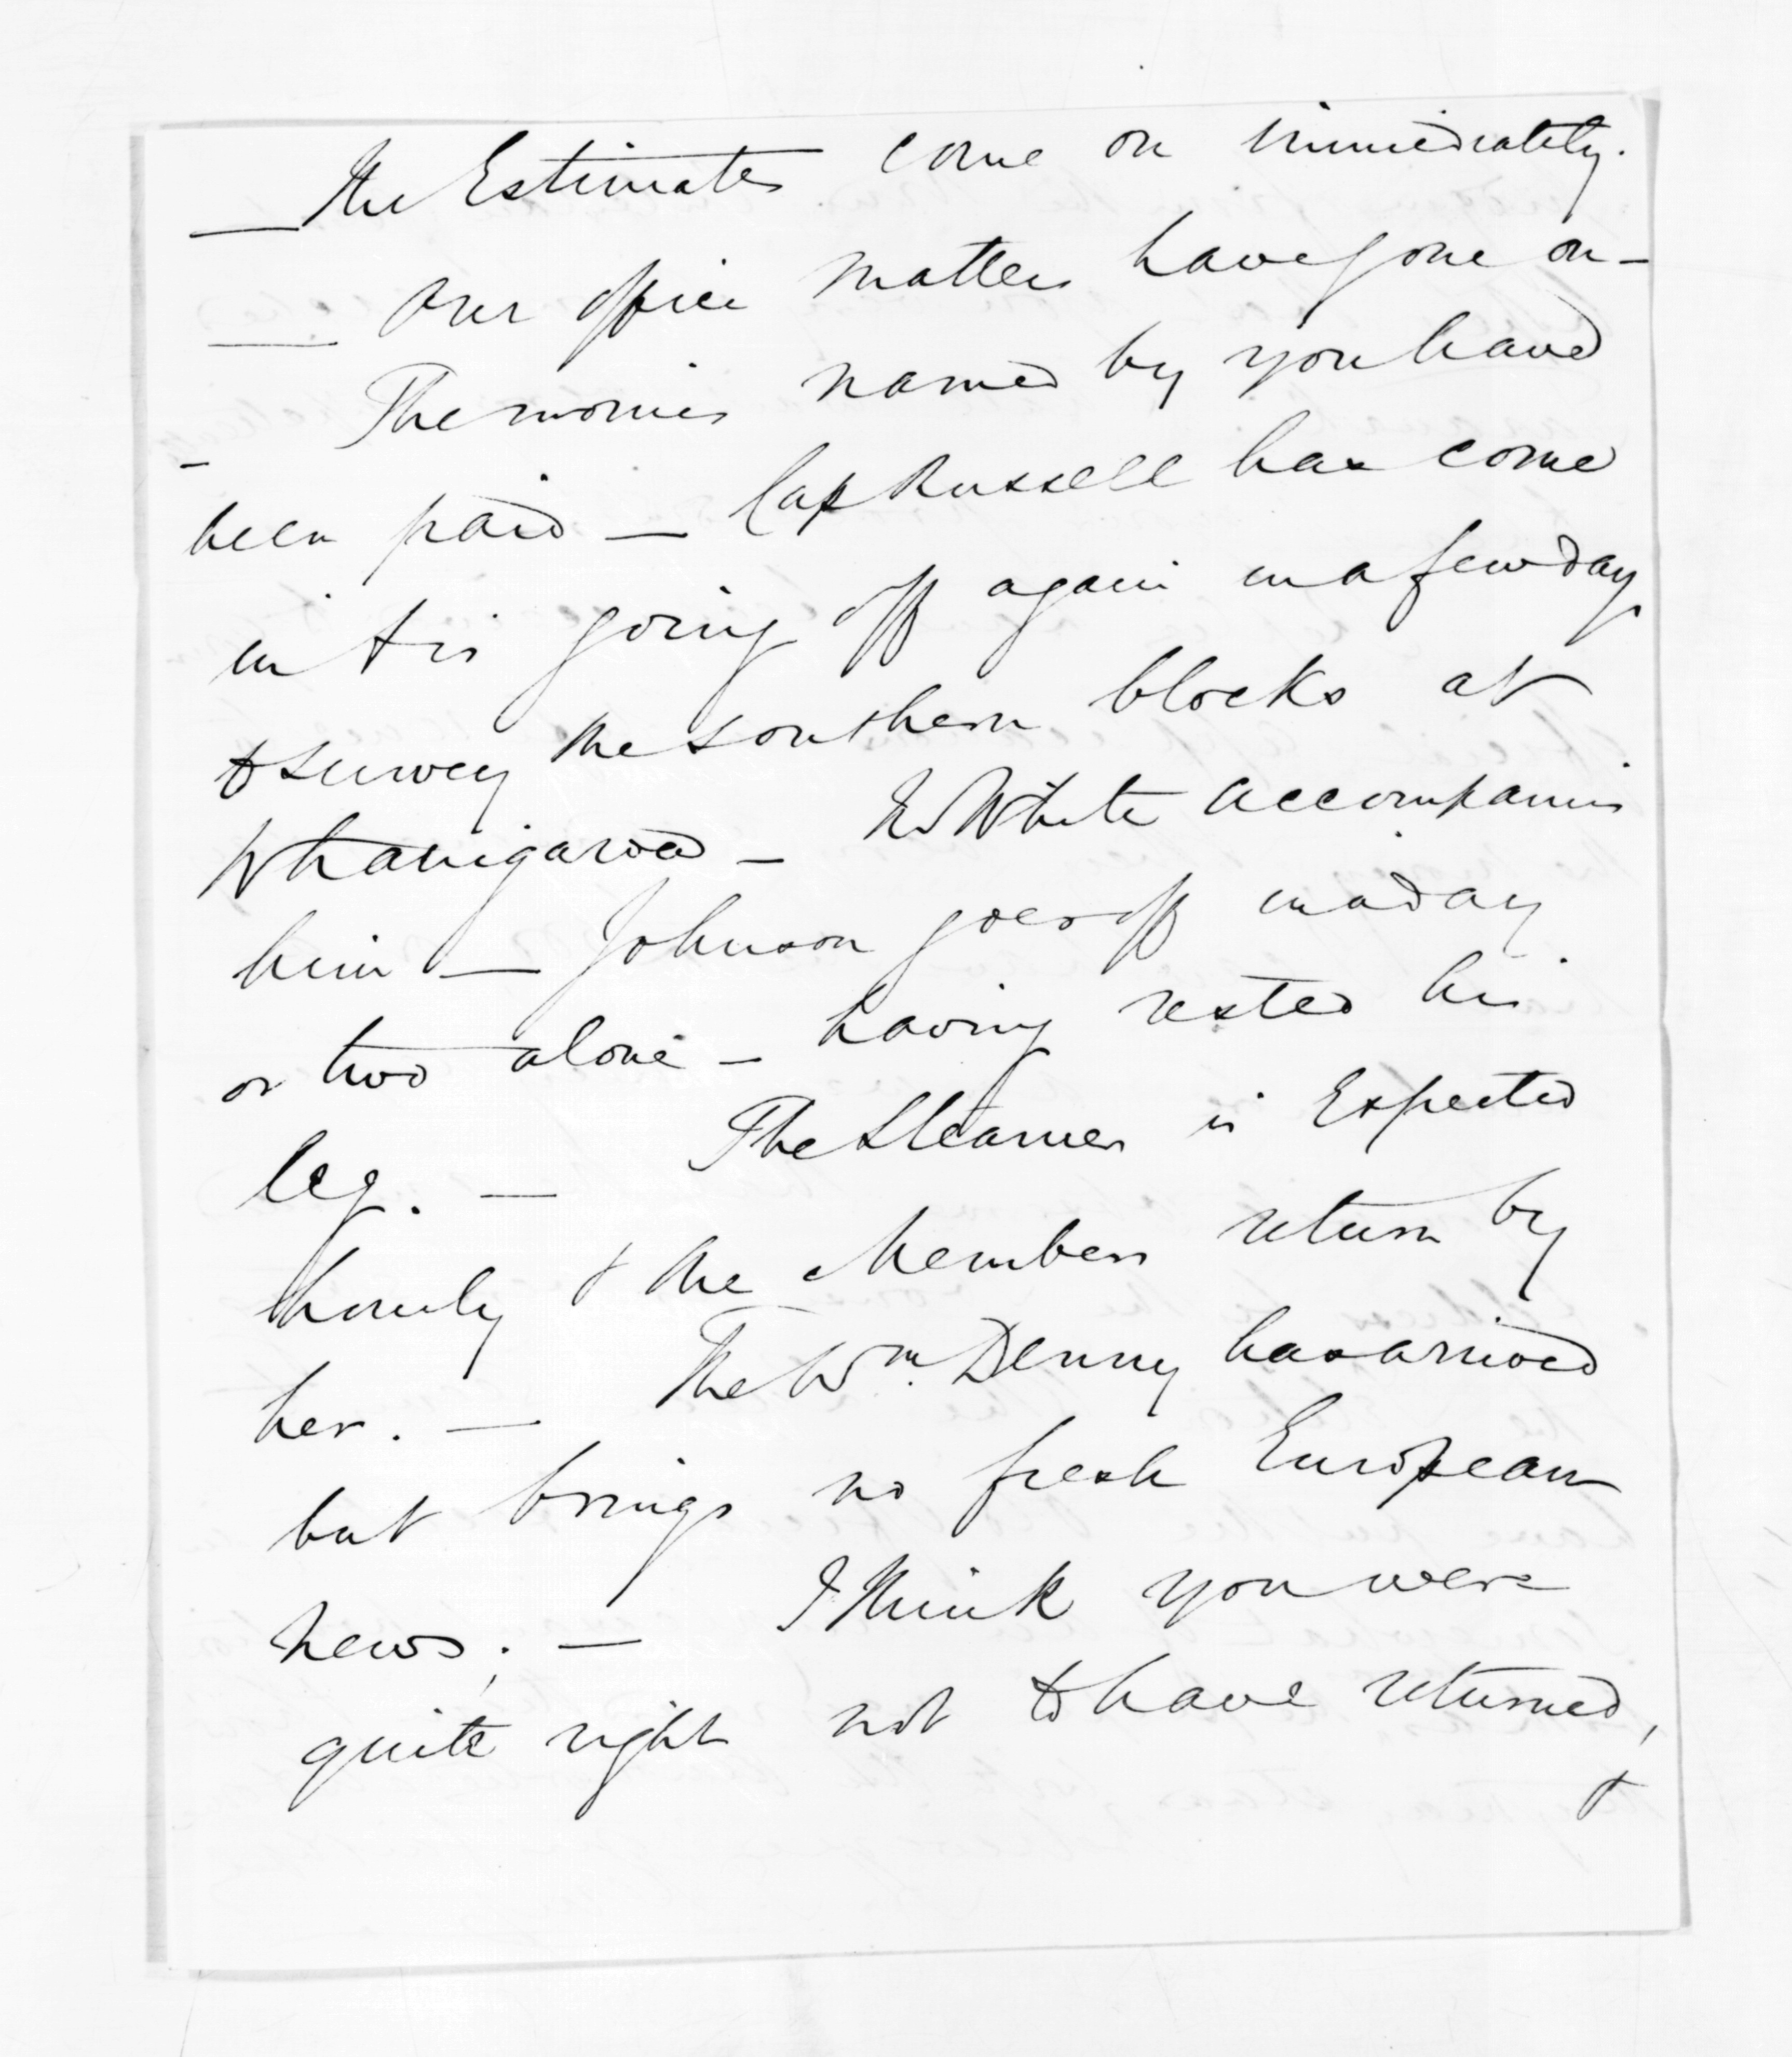 — The Estimates come on immediately.
— Our office matters have gone on —
— The monies named by you have
been paid — Cap Russell has come
in & is going off again in a few days
to survey the southern blocks at
Whangaroa — White accompanies
him — Johnson goes off in a day
or two alone — having rested his
leg. — The Steamer is Expected
hourly & the Members return by
her. — The Wm. Denny has arrived
but brings no fresh European
news. — I think you were
quite right not to have returned,
&